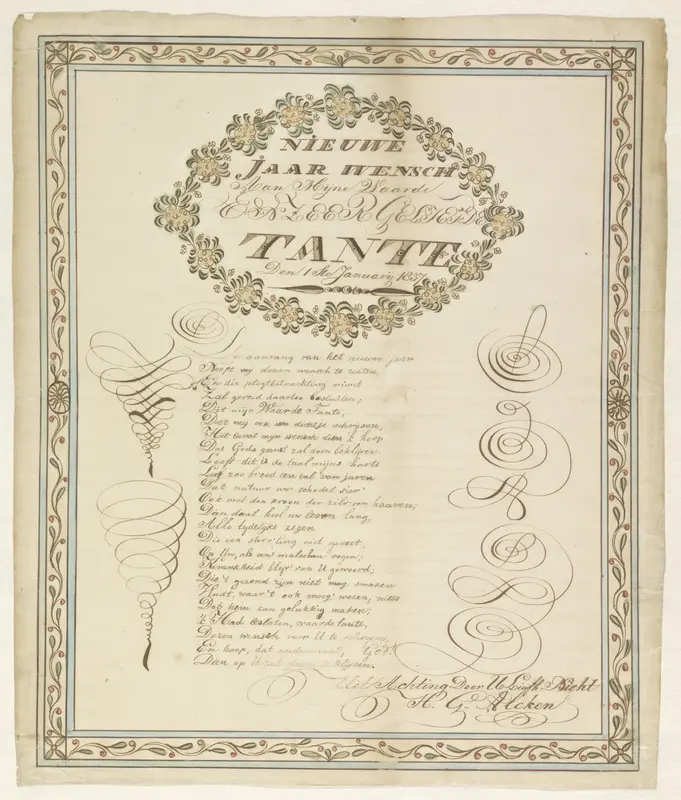 NIEUWE
JAAR WENSCH
Aan Mijne Waarde
EN ZEER GELIEFDE
TANTE
Den 1 Ste January 1837
De aanvang van het nieuwe jaar
Noopt my dezen wensch te uiten,
En die pligtbetrachting
Zal gereed daarlen besluiten;
Dit mijn Waarde Tante,
Het bevat mijn wensch dien 'k hoop
Dat Gods gunst zal doen beklijven.
Leeft dit is de taal mijns harts
Leef zoo breed een tal van jaren
Dat natuur uw schedel sier'
Ook met den kroon der zilv'ren haaren;
Dien daal heel uw leven lang,
Alle tydelijke zegen
Die een sterv'ling ooit genoot,
Op Uw, als een malschen regen;
Krankheid blyv' van U geweerd;
Die 't gezond zijn niet mag smaken
Hudt, waar 't ook moog' wezen, niets
Dat hem kan gelukkig maken;
'k Had besloten, waarde tante,
Dezen wensch voor U te schryven,
En hoop, dat Godt
Dien op U zal doen beklijven.
Uit Achting Door U Liefh. Nicht
H. Gd. Alcken